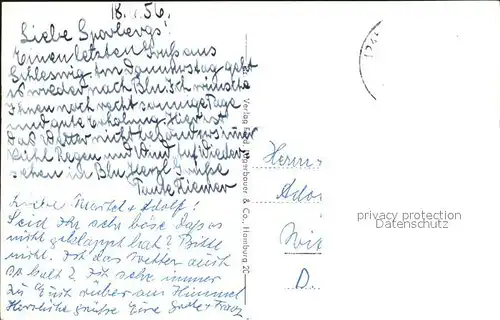 18. . 56.
Liebe Sporbergs!
Einen letzten Gruß aus
Schleswig am Donnerstag geht
es wieder nach Bln. Ich wünsche
Ihnen noch recht sonnige Tage
und gute Erholung. Hier ist
das Wetter nicht besonders immer
kühl Regen und Wind. Auf Wieder-
sehen in Bln. Herzl. Grüße
Tante Ziemer
Liebe + Adolf!
Seid Ihr sehr böse, daß es
nicht geklappt hat? Bitte
nicht. Ist das Wetter auch
so kalt? Ich sehe immer
zu Euch rüber am Himmel
Herzliche Grüße Eure + Franz
Verlag Ferd. Lagerbauer & Co., Hamburg 20
Herrn
Ado
privacy protection
Wit
D.